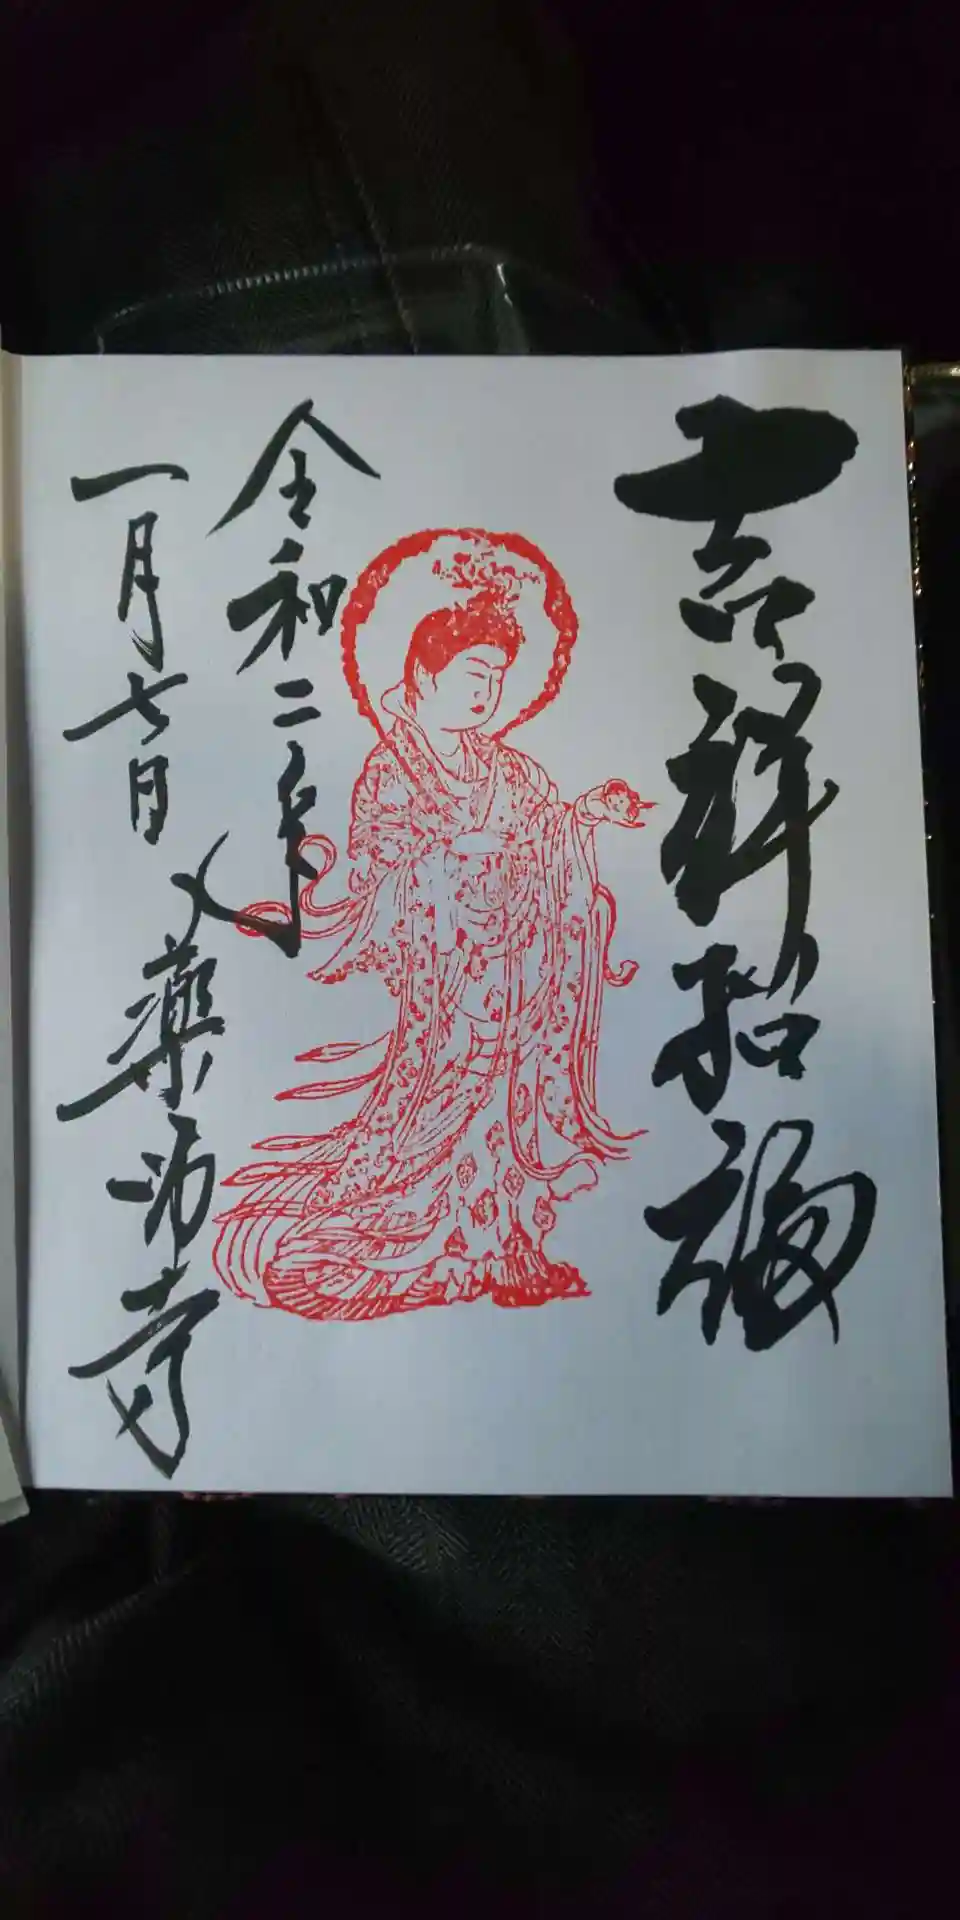 吉祥招福
令和二年
一月七日 薬師寺